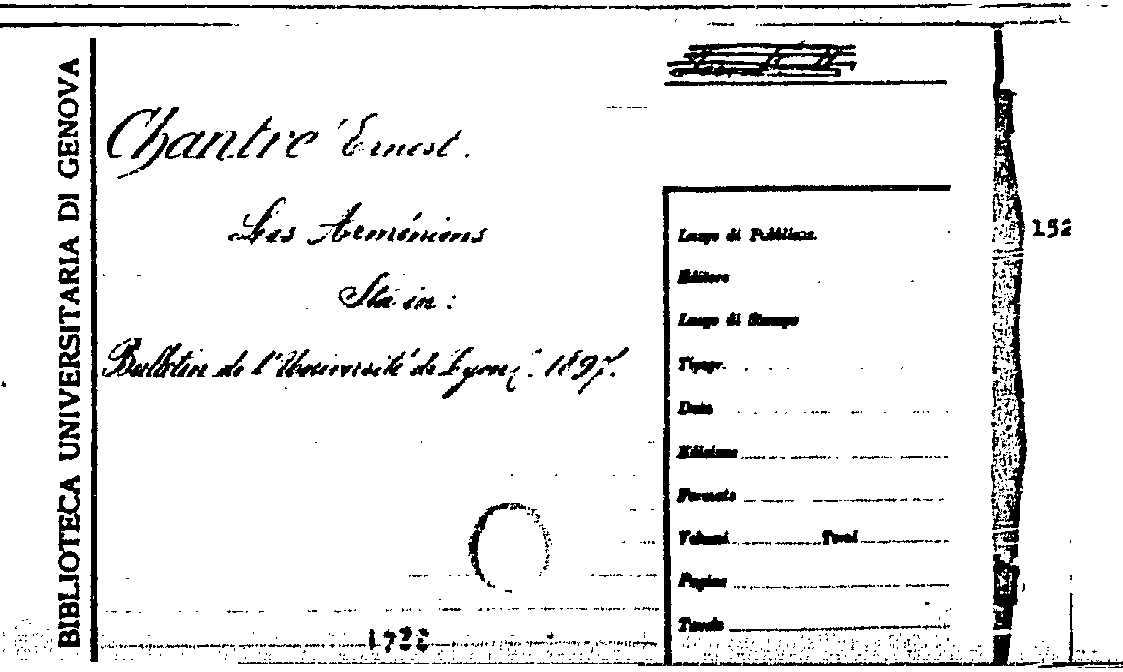 BIBLIOTECA UNIVERSITARIA DI GENOVA
Chantre Ernest.
Les Arméniens
Sta in:
Bulletin de l'Université de Lyon. 1897.
Luogo di Pubblicaz.
Editore
Luogo di Stampa
Tipogr.
Data
Edizione
Formato
Volumi Tomi
Pagine
Tavole
152